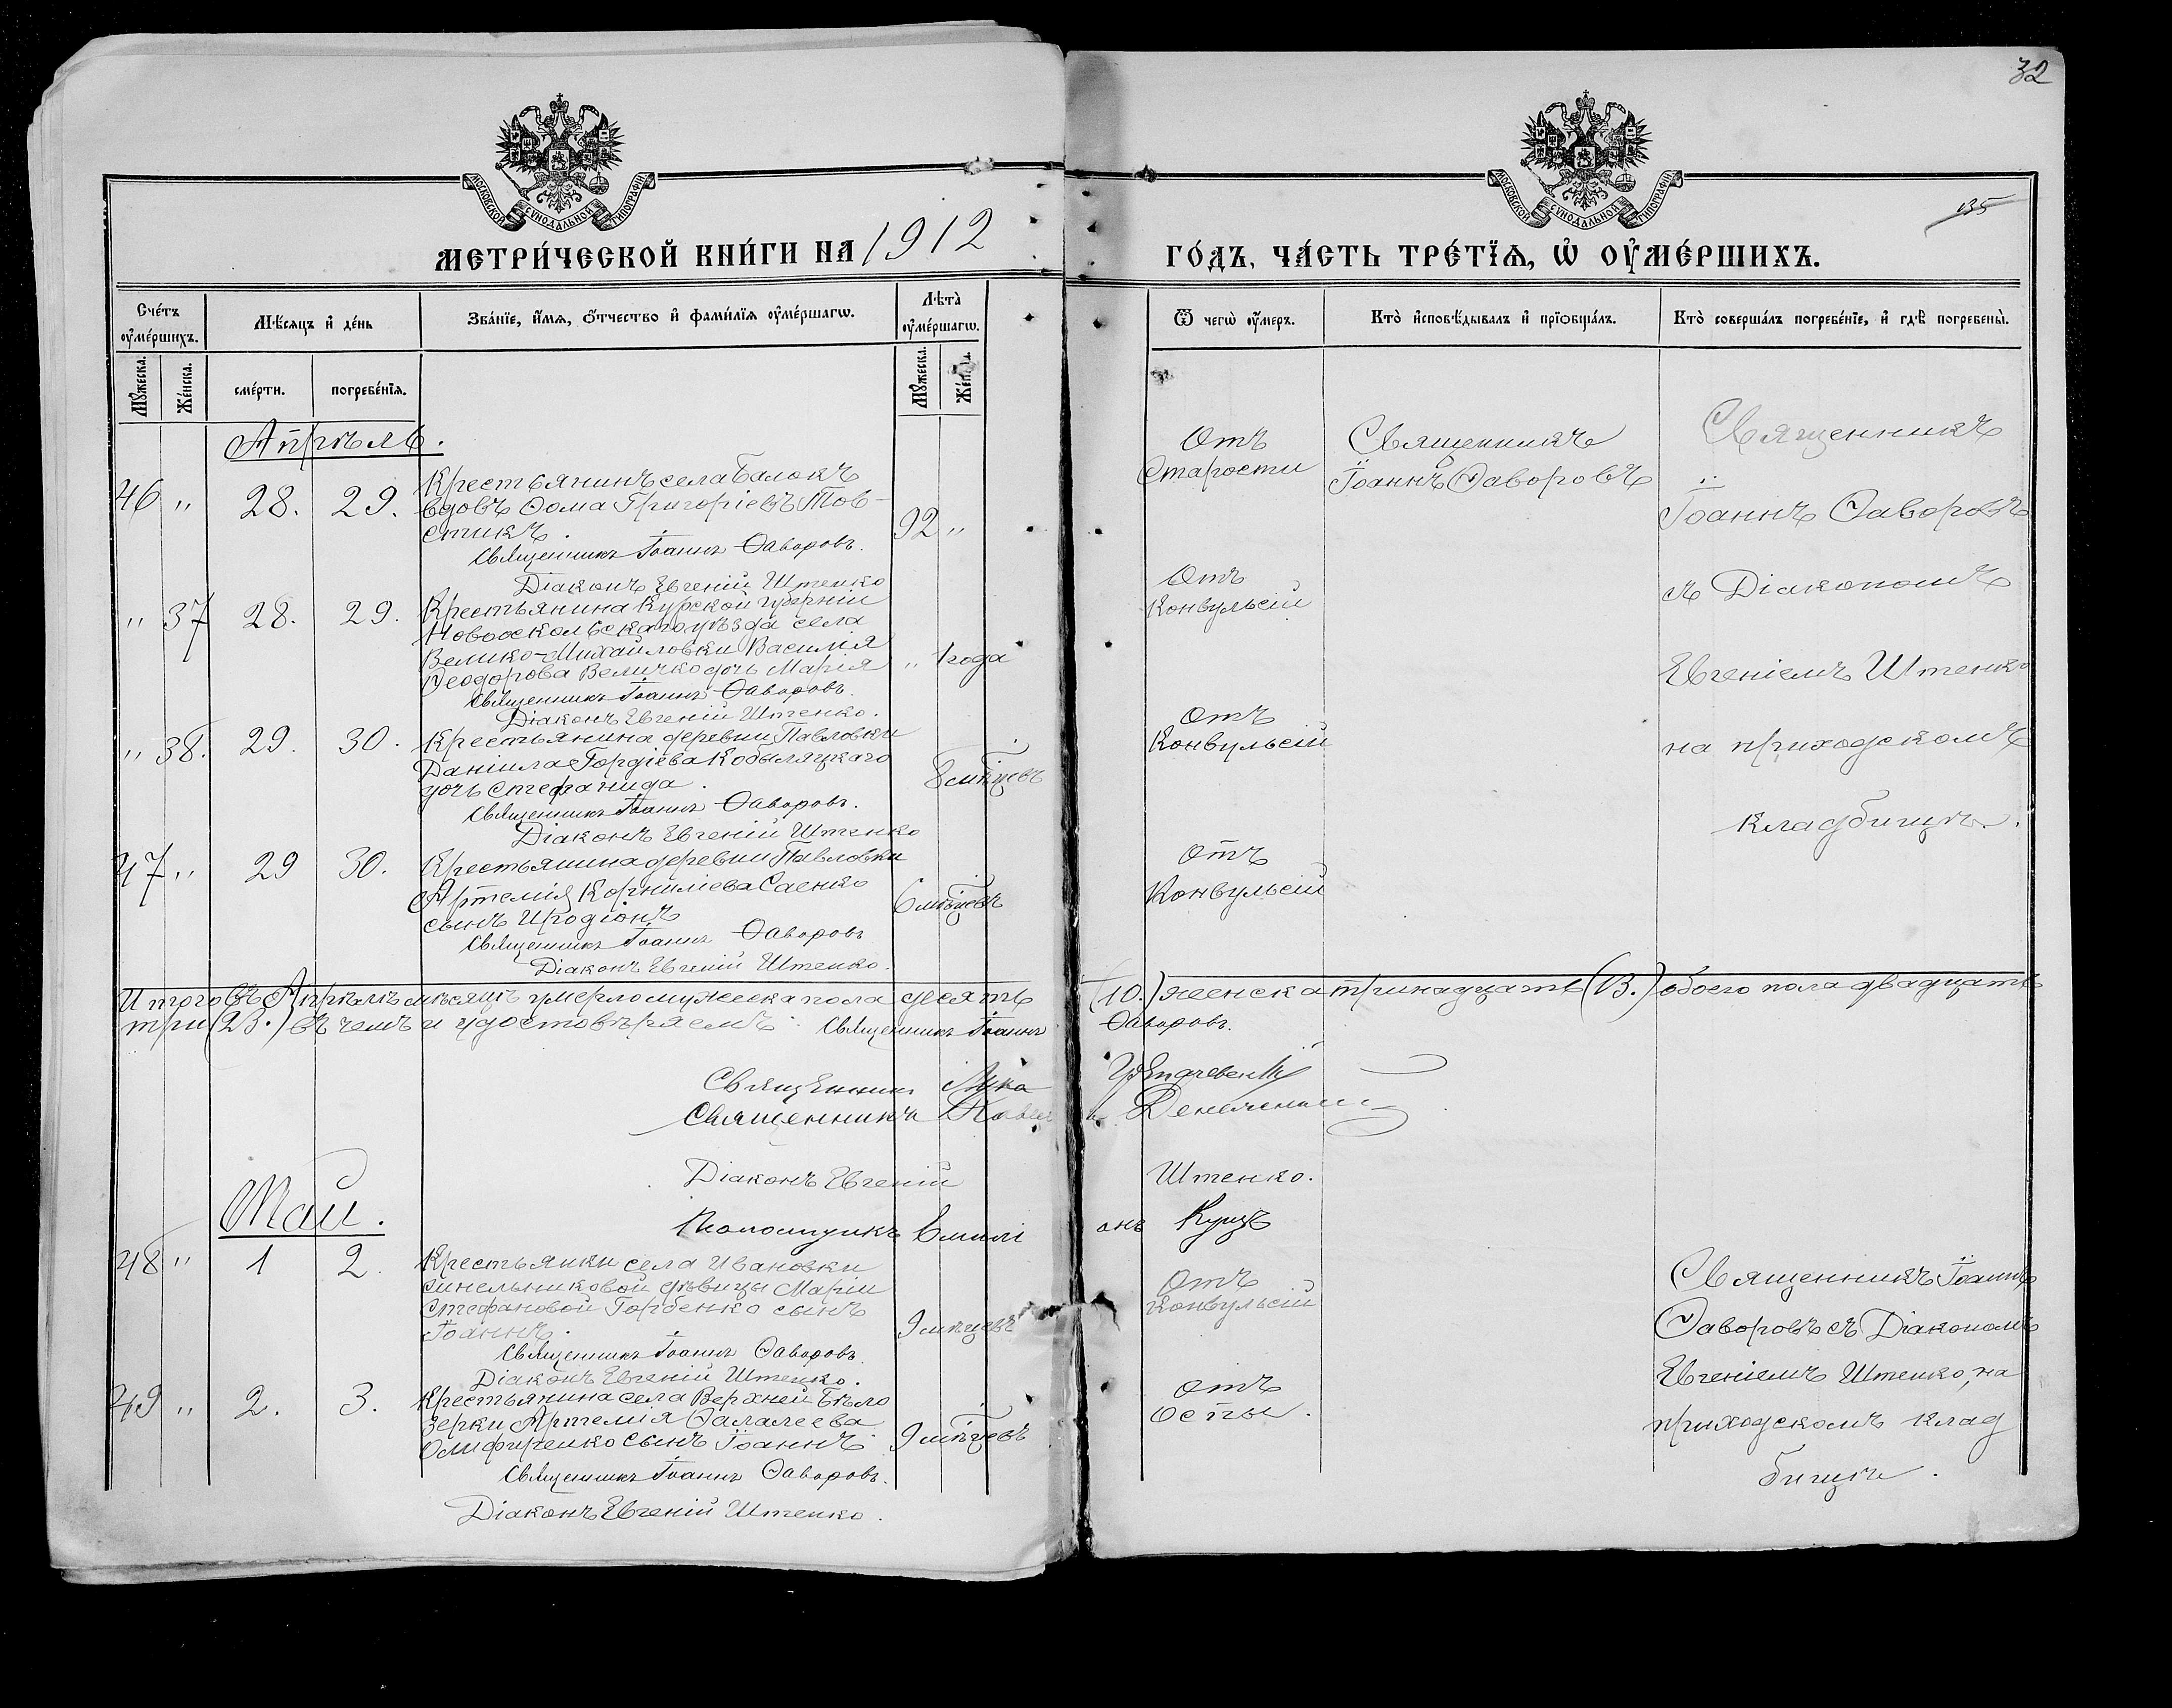 32
135
МОСКОВСКОЙ СѴНОДАЛЬНОЙ ТИПОГРАФІИ
МОСКОВСКОЙ СѴНОДАЛЬНОЙ ТИПОГРАФІИ
МЕТРИ́ЧЕСКОЙ КНИ́ГИ НА 1912
ГО́ДЪ, ЧА́СТЬ ТРЕ́ТЇѦ, Ѡ҆ ОУ҆МЕ́РШИХЪ.
Сче́тъ оу҆ме́ршихъ.
Мѣ́сяцъ и҆ де́нь
Зва́нїе, и҆́мѧ, ѻ҆́тчество и҆ фами́лїѧ оу҆ме́ршагѡ.
Лѣта̀ оу҆ме́ршагѡ.
Ѿ чегѡ̀ оу҆́меръ.
Кто̀ и҆сповѣ́дывалъ и҆ прїѡбща́лъ.
Кто̀ соверша́лъ погребе́нїе, и҆ гдѣ̀ погребены̀.
Мꙋ́жеска.
Же́нска.
сме́рти.
погребе́нїѧ.
Мꙋ́жеска.
Же́нска.
Апрѣль.
46 " 28. 29.
Крестьянинъ села Балокъ
вдовъ Ѳома Григоріевъ Тов-
стикъ.
92 "
Священникъ Іоаннъ Ѳаворовъ.
Діаконъ Евгеній Штенко
Отъ
Старости
Священникъ
Іоаннъ Ѳаворовъ
Священникъ
Іоаннъ Ѳаворовъ
съ Діакономъ
Евгеніемъ Штенко
на приходскомъ
кладбищѣ.
" 37 28. 29.
Крестьянина Курской губерніи
Новооскольскаго уѣзда села
Велико-Михайловки Василія
Ѳеодорова Величко дочь Марія
" 1 года
Священникъ Іоаннъ Ѳаворовъ.
Діаконъ Евгеній Штенко.
Отъ
Конвульсій
" 38. 29. 30.
Крестьянина деревни Павловки
Даніила Гордіева Кобыляцкаго
дочь Стефанида.
8 мѣсцевъ
Священникъ Іоаннъ Ѳаворовъ.
Діаконъ Евгеній Штенко
Отъ
Конвульсій
47 " 29 30.
Крестьянина деревни Павловки
Артемія Корниліева Саенко
сынъ Иродіонъ
6 мѣсцевъ
Священникъ Іоаннъ Ѳаворовъ
Діаконъ Евгеній Штенко.
Отъ
Конвульсій
Итого въ Апрѣлѣ мѣсяцѣ умерло мужеска пола десять (10.) женска тринадцать (13.) обоего пола двадцать
три (23.) въ чемъ и удостовѣряемъ: Священникъ Іоаннъ Ѳаворовъ.
Священникъ Лука
Священникъ Павелъ
Діаконъ Евгеній Штенко.
Май.
Псаломщикъ Емиліанъ Куцъ
48 " 1 2.
Крестьянки села Ивановки
Синельниковой дѣвицы Маріи
Стефановой Горбенко сынъ
Іоаннъ.
9 мѣсцевъ
Священникъ Іоаннъ Ѳаворовъ
Діаконъ Евгеній Штенко.
Отъ
Конвульсій
Священникъ Іоаннъ
Ѳаворовъ съ Діакономъ
Евгеніемъ Штенко, на
приходскомъ клад
бищѣ.
49 " 2. 3.
Крестьянина села Верхней Бѣло
зерки Артемія Ѳалалеева
Олифиренко сынъ Іоаннъ
9 мѣсцевъ
Священникъ Іоаннъ Ѳаворовъ.
Діаконъ Евгеній Штенко.
Отъ
Оспы.